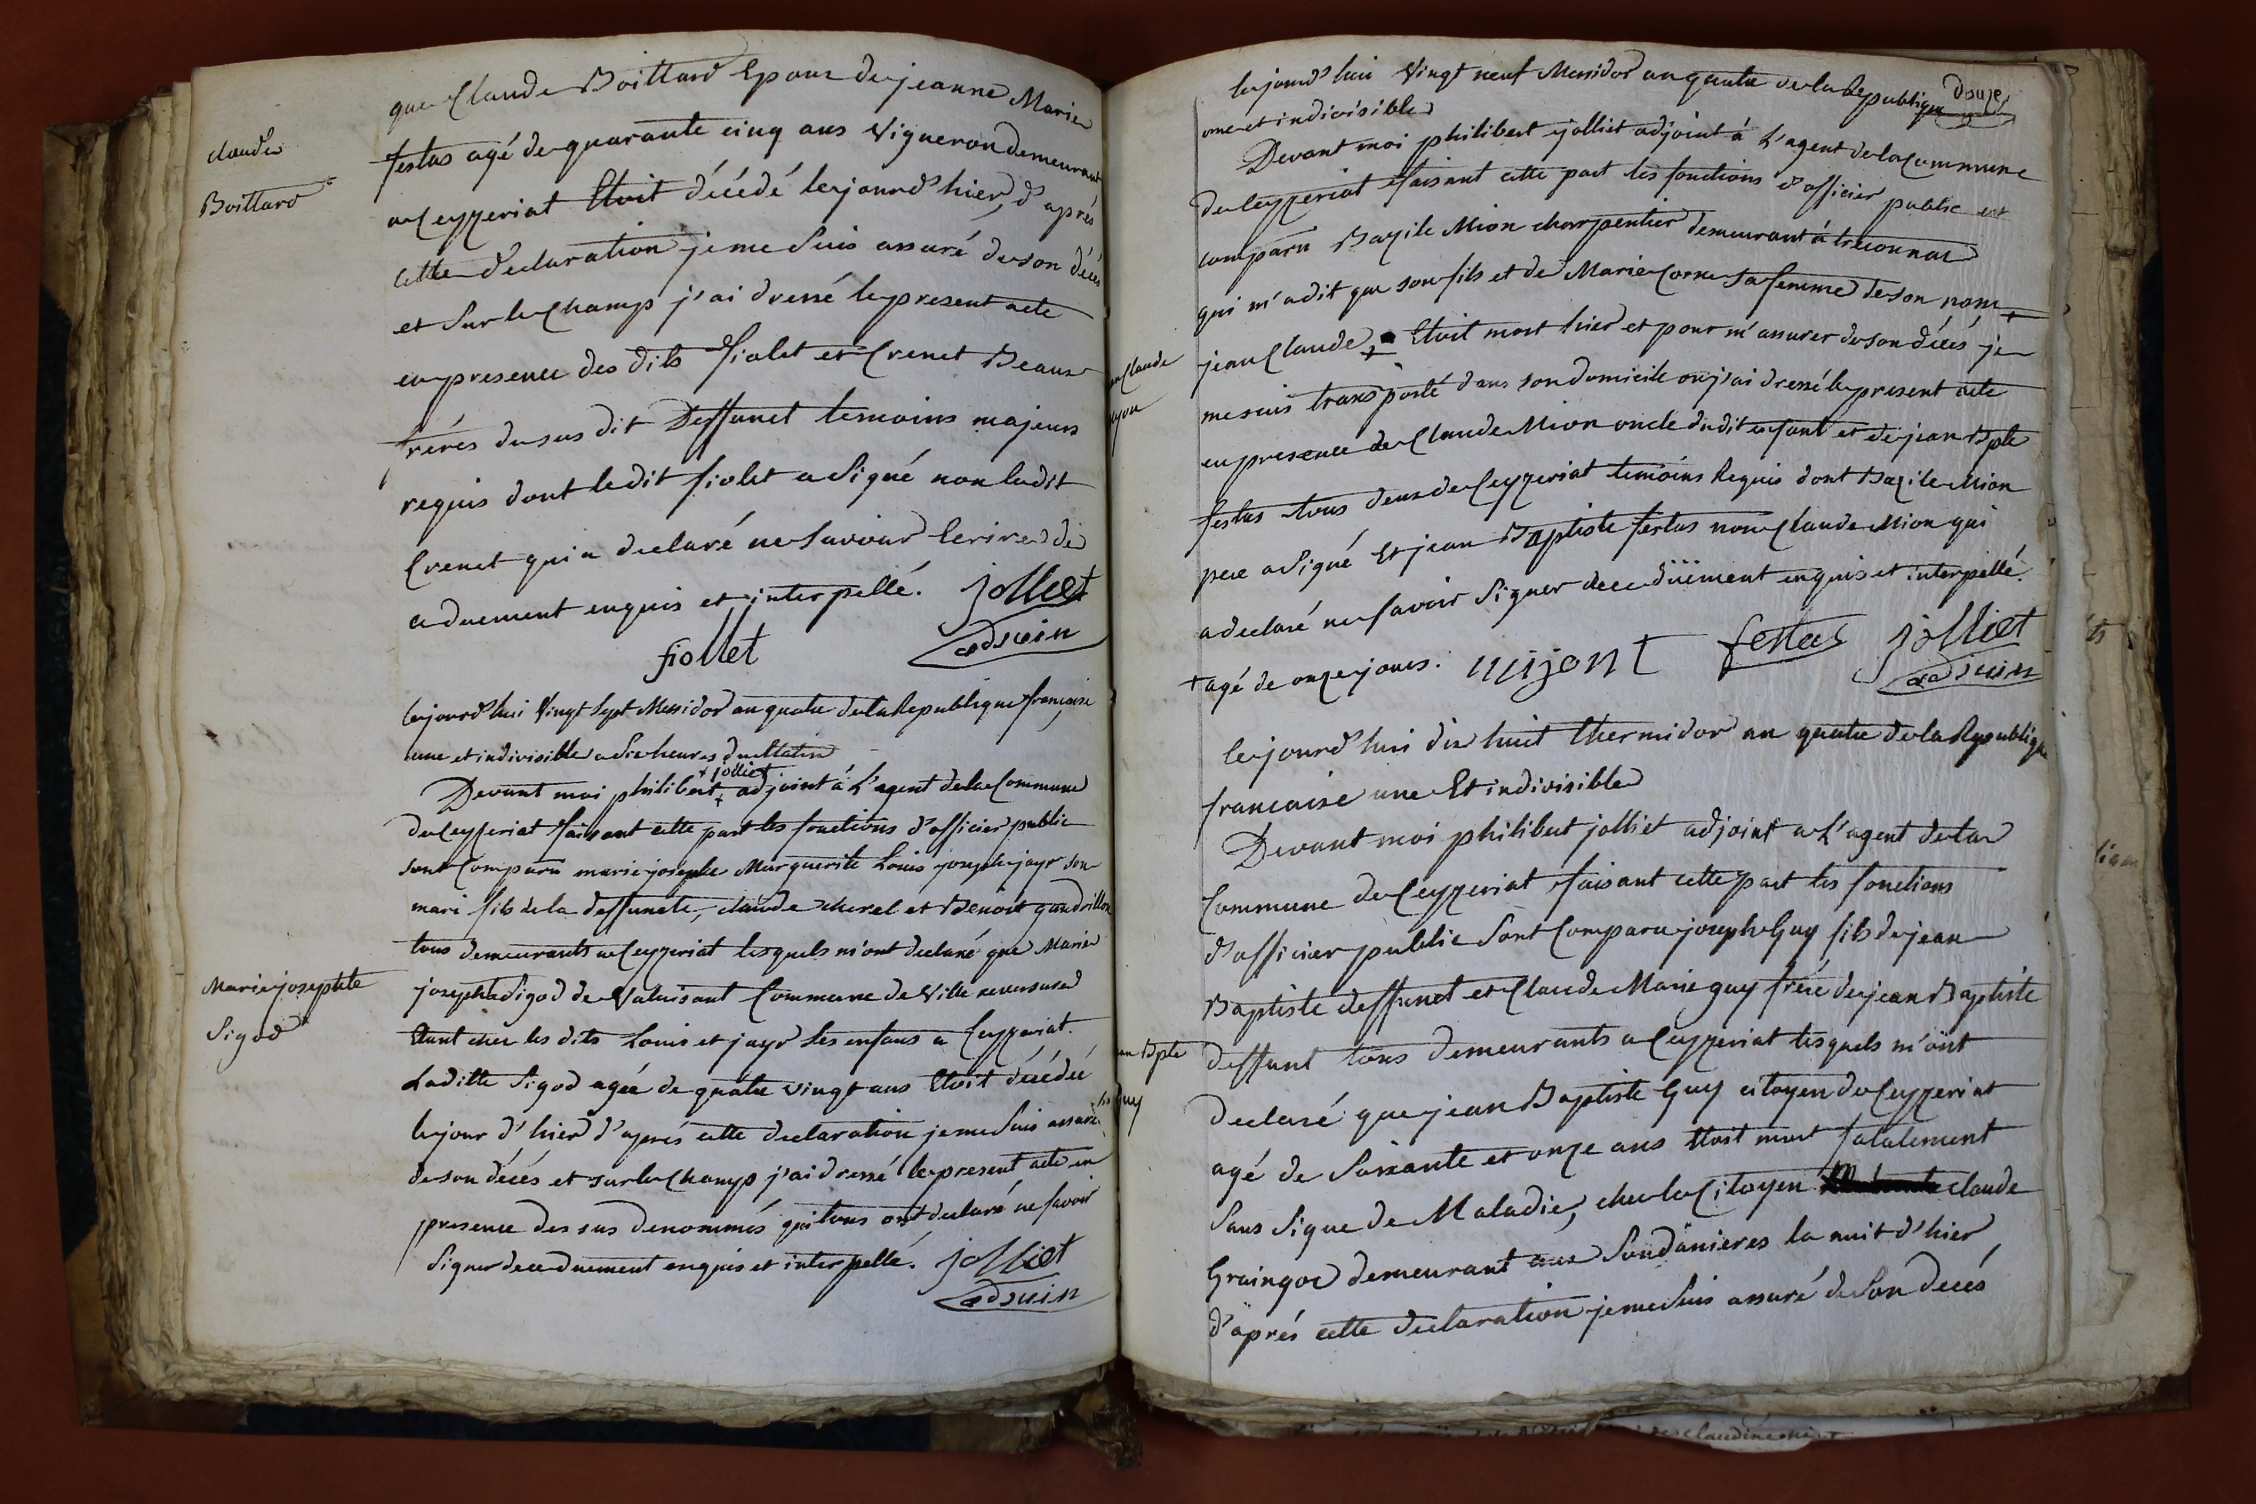 claude
Boittard
que Claude Boittard Epoux de jeanne Marie
festas agé de quarante cinq ans Vigneron demeurant
a Ceyzeriat Etoit décédé lejourd'hier, d'aprés
cette declaration je me suis assuré de son décés
et Sur le Champ j'ai dressé le present acte
en presence des dits fiolet et Crenet Beaux
fréres du sus dit Deffunct temoins majeurs
requis dont ledit fiolet a Signé non ledit
Crenet qui a declaré ne Savoir Ecrire de ce
a duement enquis et interpellé. jolliet
fiollet adjoin
Lejourd'hui Vingt Sept Messidor an quatre de la Republique française
une et indivisible a Six heures du Matin
+ jolliet
Devant moi philibert + adjoint à L'agent de la Commune
de Ceyzeriat faisant cette part les fonctions d'officier public
sont Comparu marie josephe Marguerite Louis joseph jayr son
mari fils de la deffuncte, claude cherel et Benoit gaudrillon
tous demeurants a Ceyzeriat lesquels m'ont declaré que Marie
Marie josephte
Sigod
josephte Sigod de Valuisant Commune de Ville reversure
Etant chez les dits Louis et jayr Ses enfans a Ceyzeriat.
Laditte Sigod agée de quatre vingt ans Etoit décédée
lejour d'hier d'aprés cette declaration je me Suis assuré
de son décés et sur le Champ j'ai dressé le present acte en
presence des sus denommés qui tous ont declaré ne savoir
Signer de ce duement enquis et interpellé. jolliet
adjoin
douze
Lejourd'hui Vingt neuf Messidor an quatre de la Republique
une et indivisible
Devant moi philibert jolliet adjoint à L'agent de la Commune
de Ceyzeriat faisant cette part les fonctions d'officier public est
comparu Bazile Mion charpentier demeurant à treconnas
qui m'a dit que son fils et de Marie Corne sa femme de son nom
jean Claude + Etoit mort hier et pour m'assurer de son décés je
Claude
me suis transporté dans son domicile ou j'ai dressé le present acte
en presence de Claude Mion oncle dudit enfant et de jean Bpte
festas tous deux de Ceyzeriat temoins Requis dont Bazile Mion
pere a Signé Et jean Baptiste festas non Claude Mion qui
a declaré ne savoir Signer de ce düement enquis et interpellé.
+ agé de onze jours. mijont festas jolliet
adjoin
Lejourd'hui dix huit thermidor an quatre de la Republique
francaise une Et indivisible
Devant moi philibert jolliet adjoint a L'agent de la
Commune de Ceyzeriat faisant cette part les fonctions
d'officier public Sont Comparu joseph Guy fils de jean
Baptiste deffunct et Claude Marie guy frére de jean Baptiste
deffunt tous demeurants a Ceyzeriat lesquels m'ont
Bpte
Guy
declaré que jean Baptiste Guy citoyen de Ceyzeriat
agé de Soixante et onze ans Etoit mort fatalement
Sans Signe de Maladie, chez le Citoyen claude
Graingoz demeurant aux Soudanieres la nuit d'hier
d'aprés cette declaration je me Suis assuré de Son decés